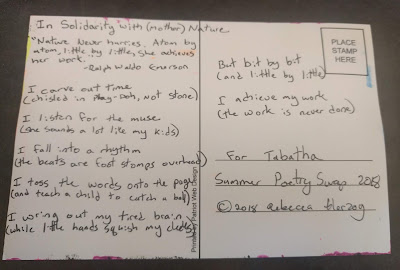 In Solidarity with (mother) Nature
"Nature never hurries. Atom by
atom, little by little, she achieves
her work."
-Ralph Waldo Emerson
I carve out time
(chisled in Play-Doh, not stone)
I listen for the muse
(she sounds a lot like my kids)
I fall into a rhythm
(the beats are foot stomps overhead)
I toss the words onto the page
(and teach a child to catch a ball)
I wring out my tired brain
(while little hands squish my cheeks)
Printed by Patriot Web Design
PLACE
STAMP
HERE
But bit by bit
(and little by little)
I achieve my work
(the work is never done)
For Tabatha
Summer Poetry Swap 2018
© 2018 Rebecca Herzog